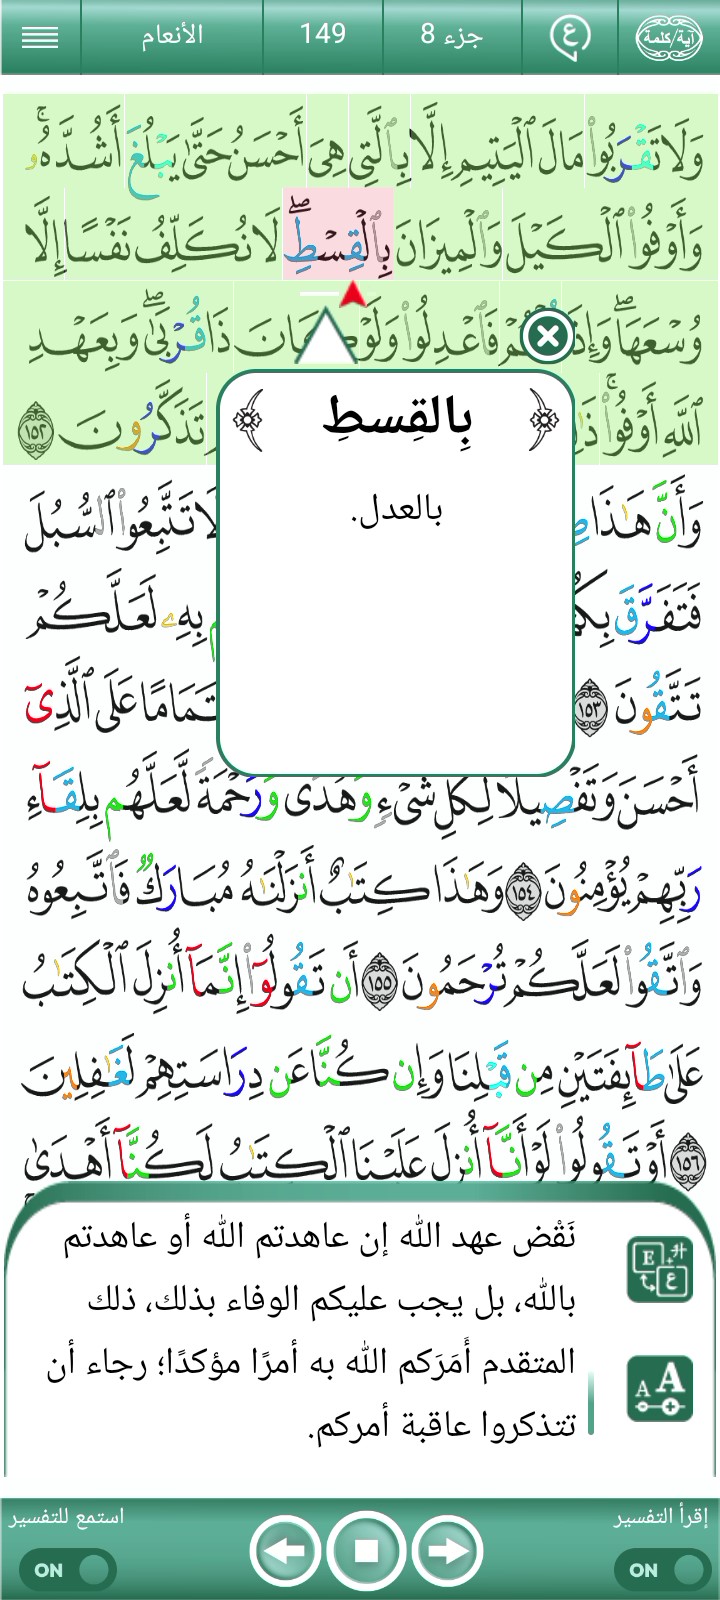 آية/كلمة
ع
جزء 8
149
الأنعام
وَلَا تَقْرَبُوا۟ مَالَ ٱلْيَتِيمِ إِلَّا بِٱلَّتِى هِىَ أَحْسَنُ حَتَّىٰ يَبْلُغَ أَشُدَّهُۥۚ
وَأَوْفُوا۟ ٱلْكَيْلَ وَٱلْمِيزَانَ بِٱلْقِسْطِۖ لَا نُكَلِّفُ نَفْسًا إِلَّا
وُسْعَهَاۖ وَإِذَا فَٱعْدِلُوا۟ وَلَوْ كَانَ ذَا قُرْبَىٰۖ وَبِعَهْدِ
ٱللَّهِ أَوْفُوا۟ۚ تَذَكَّرُونَ ١٥٢
بِالقِسطِ
بالعدل.
وَأَنَّ هَٰذَا لَا تَتَّبِعُوا۟ ٱلسُّبُلَ
فَتَفَرَّقَ بِكُمْ بِهِۦ لَعَلَّكُمْ
تَتَّقُونَ ١٥٣ تَمَامًا عَلَى ٱلَّذِىٓ
أَحْسَنَ وَتَفْصِيلًا لِّكُلِّ شَىْءٍ وَهُدًى وَرَحْمَةً لَّعَلَّهُم بِلِقَآءِ
رَبِّهِمْ يُؤْمِنُونَ ١٥٤ وَهَٰذَا كِتَٰبٌ أَنزَلْنَٰهُ مُبَارَكٌ فَٱتَّبِعُوهُ
وَٱتَّقُوا۟ لَعَلَّكُمْ تُرْحَمُونَ ١٥٥ أَن تَقُولُوٓا۟ إِنَّمَآ أُنزِلَ ٱلْكِتَٰبُ
عَلَىٰ طَآئِفَتَيْنِ مِن قَبْلِنَا وَإِن كُنَّا عَن دِرَاسَتِهِمْ لَغَٰفِلِينَ
١٥٦ أَوْ تَقُولُوا۟ لَوْ أَنَّآ أُنزِلَ عَلَيْنَا ٱلْكِتَٰبُ لَكُنَّآ أَهْدَىٰ
نَقْض عهد الله إن عاهدتم الله أو عاهدتم
بالله، بل يجب عليكم الوفاء بذلك، ذلك
المتقدم أَمَرَكم الله به أمرًا مؤكدًا؛ رجاء أن
تتذكروا عاقبة أمركم.
E ع
A A
إقرأ التفسير
استمع للتفسير
ON
ON